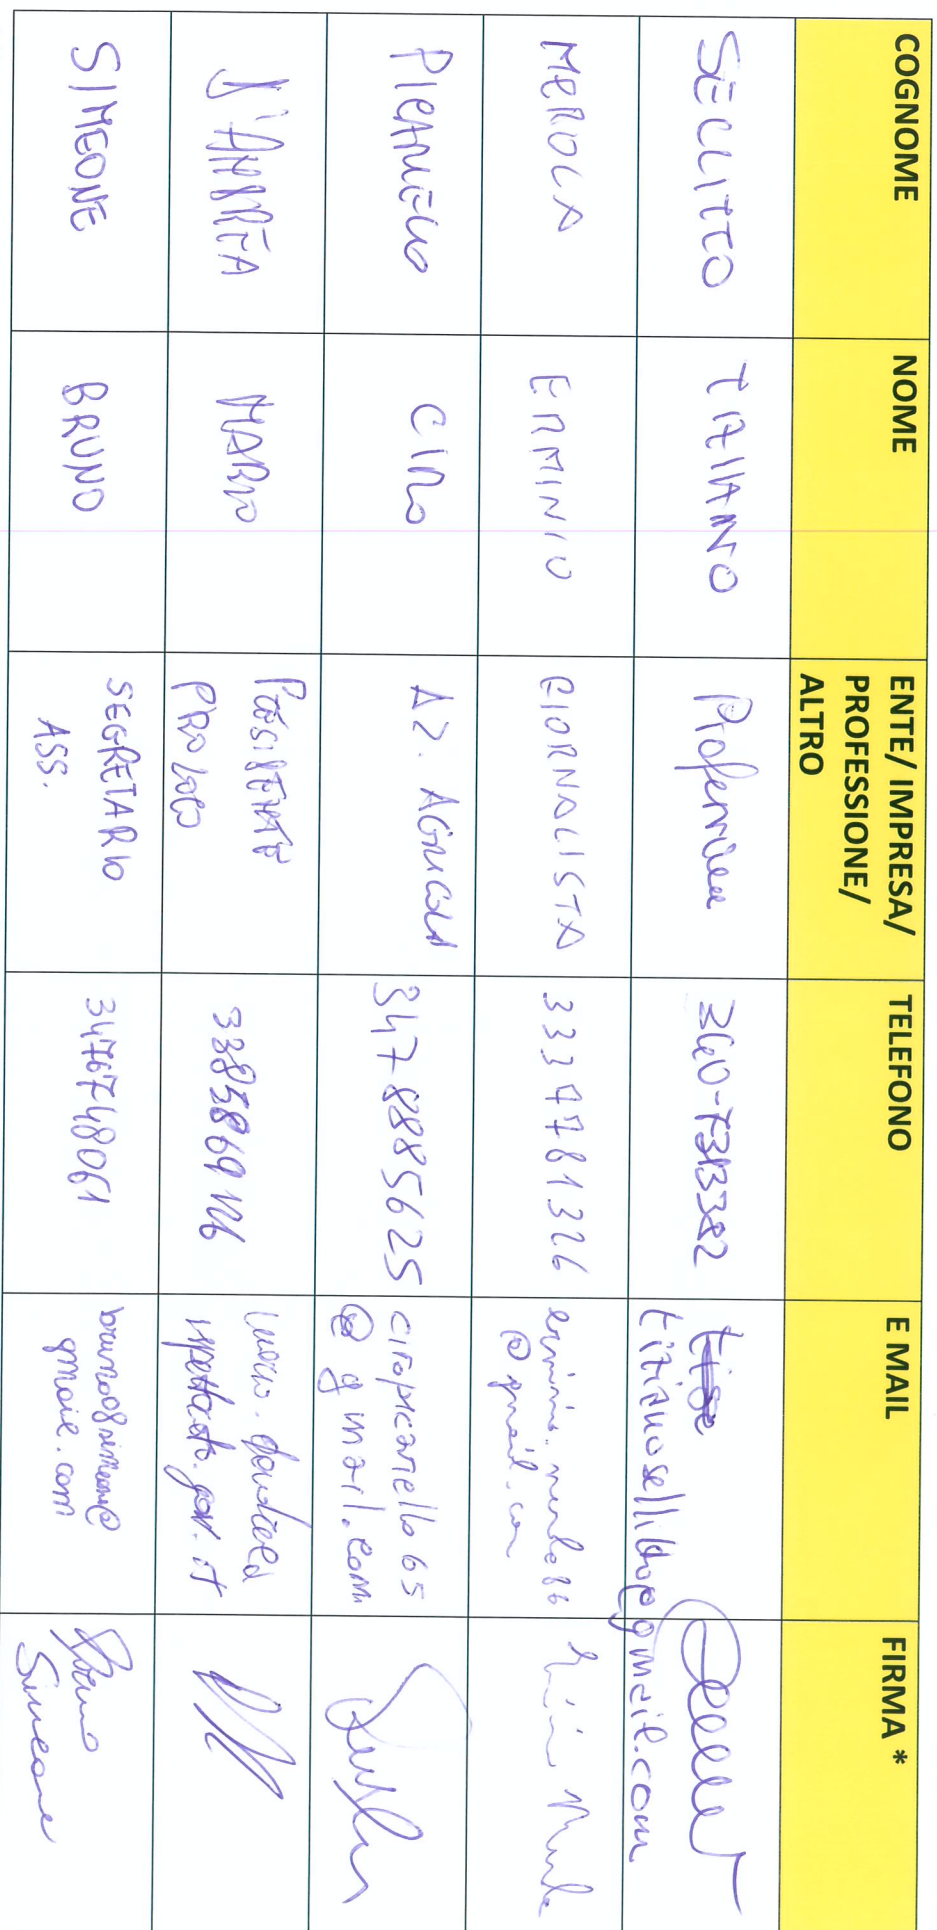 COGNOME NOME ENTE/ IMPRESA/ PROFESSIONE/ ALTRO TELEFONO E MAIL FIRMA *
SECLITTO TIZIANO 340-7313382
tizianosellitto@gmail.com
MEROLA ERMINIO GIORNALISTA 3337781326
@gmail.com
PICARIELLO CIRO AZ. AGRICOLA 347-8885625 ciropicariello65
@gmail.com
D'ANDREA MARIO PRESIDENTE
PRO LOCO 3385869126
SIMEONE BRUNO SEGRETARIO
ASS. 3476748061
gmail.com
Bruno
Simeone